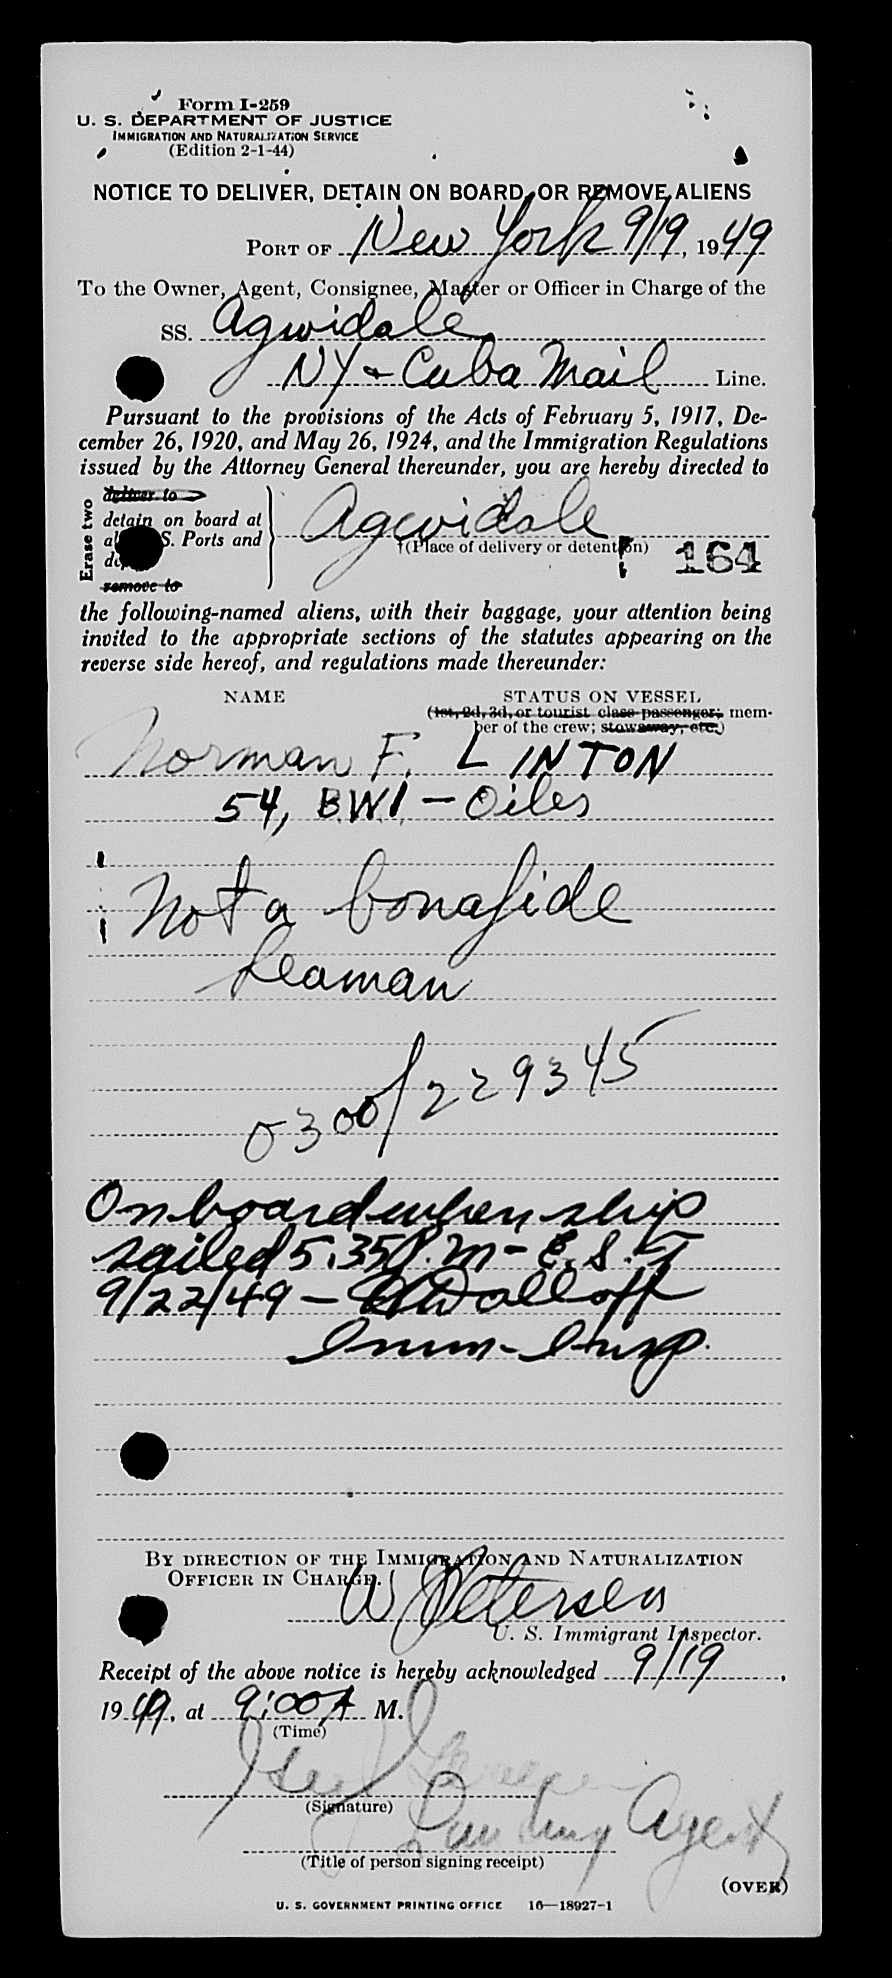 Form I-259
U. S. DEPARTMENT OF JUSTICE
IMMIGRATION AND NATURALIZATION SERVICE
(Edition 2-1-44)
NOTICE TO DELIVER, DETAIN ON BOARD, OR REMOVE ALIENS
PORT OF New York 9/19, 1949
To the Owner, Agent, Consignee, Master or Officer in Charge of the
SS. Agwidale
NY & Cuba Mail Line.
Pursuant to the provisions of the Acts of February 5, 1917, De-
cember 26, 1920, and May 26, 1924, and the Immigration Regulations
issued by the Attorney General thereunder, you are hereby directed to
Erase two
deliver to
detain on board at
S. Ports and
remove to
Agwidale
†(Place of delivery or detention)
164
the following-named aliens, with their baggage, your attention being
invited to the appropriate sections of the statutes appearing on the
reverse side hereof, and regulations made thereunder:
NAME STATUS ON VESSEL
(1st, 2d, 3d, or tourist class passenger; mem-
ber of the crew; stowaway, etc.)
Norman F. LINTON
54, B.W.I. - Oiler
Not a bonafide
Seaman
0300/229345
On board when ship
sailed 5.35 P.M - E.S.T
9/22/49 -
Imm-Insp.
BY DIRECTION OF THE IMMIGRATION AND NATURALIZATION
OFFICER IN CHARGE.
W Petersen
U. S. Immigrant Inspector.
Receipt of the above notice is hereby acknowledged 9/19,
1949, at 9:00 A M.
(Time)
(Signature)
Landing Agent
(Title of person signing receipt)
(OVER)
U. S. GOVERNMENT PRINTING OFFICE 16—18927-1